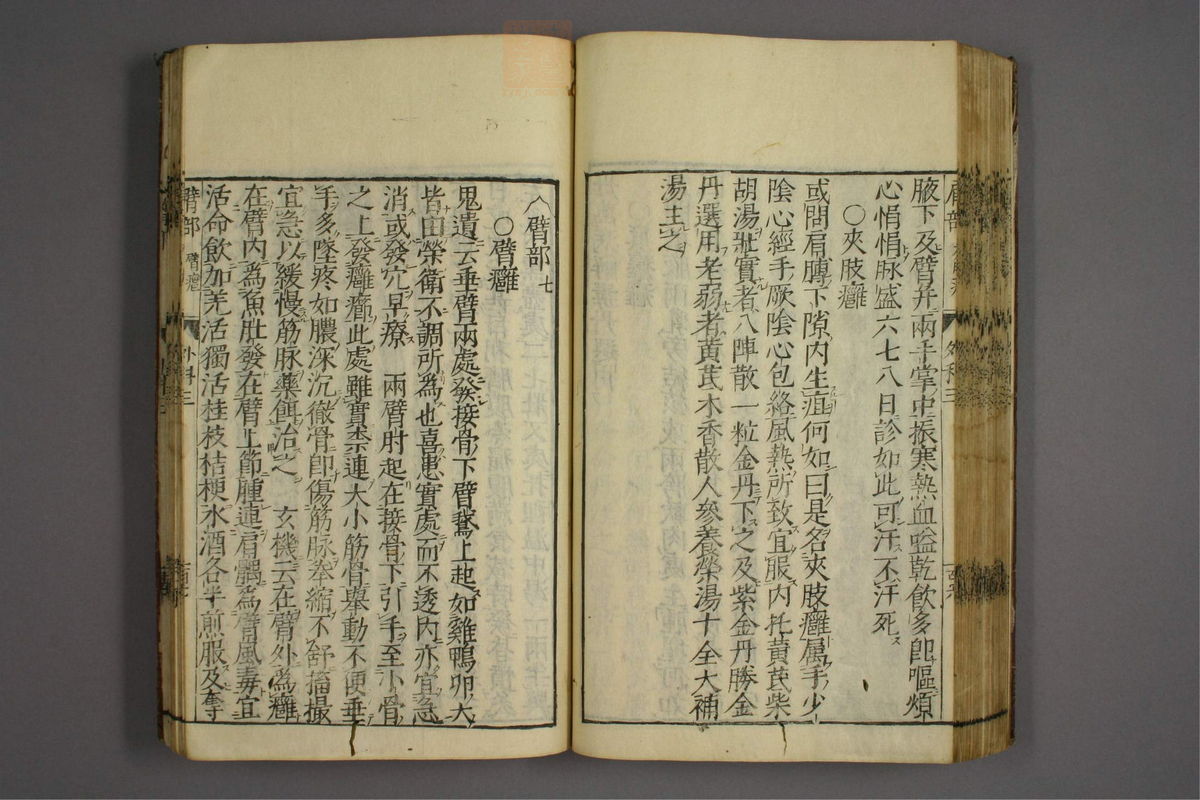 腋下及臂并兩手掌中振寒熱血嗌乾飲多即嘔煩
心悁悁脉盛六七八日診如此可汗不汗死
○夾肢癰
或問肩膊下隙內生疽何如曰是名夾肢癰属手少
陰心經手厥陰心包絡風熱所致宜服內托黃芪柴
胡湯壯實者八陣散一粒金丹下之及紫金丹勝金
丹選用老弱者黃芪木香散人參養榮湯十全大補
湯主之
臂部 七
○臂癰
鬼遺云垂臂兩處發接骨下臂鵞上起如雞鴨卵大
皆由榮衛不調所為也喜患實處而不透內亦宜急
消或發穴早療 兩臂肘起在接骨下引手至小骨
之上發癰癤此處雖實柰連大小筋骨舉動不便垂
手多墜疼如膿深沉徹骨即傷筋脉拳縮不舒擂撮
宜急以緩慢筋脉藥餌治之 玄機云在臂外為癰
在臂內為魚肚發在臂上節腫連肩髃為臂風毒宜
活命飲加羌活獨活桂枝桔梗水酒各半煎服及奪
臂部 臂癰 外科三